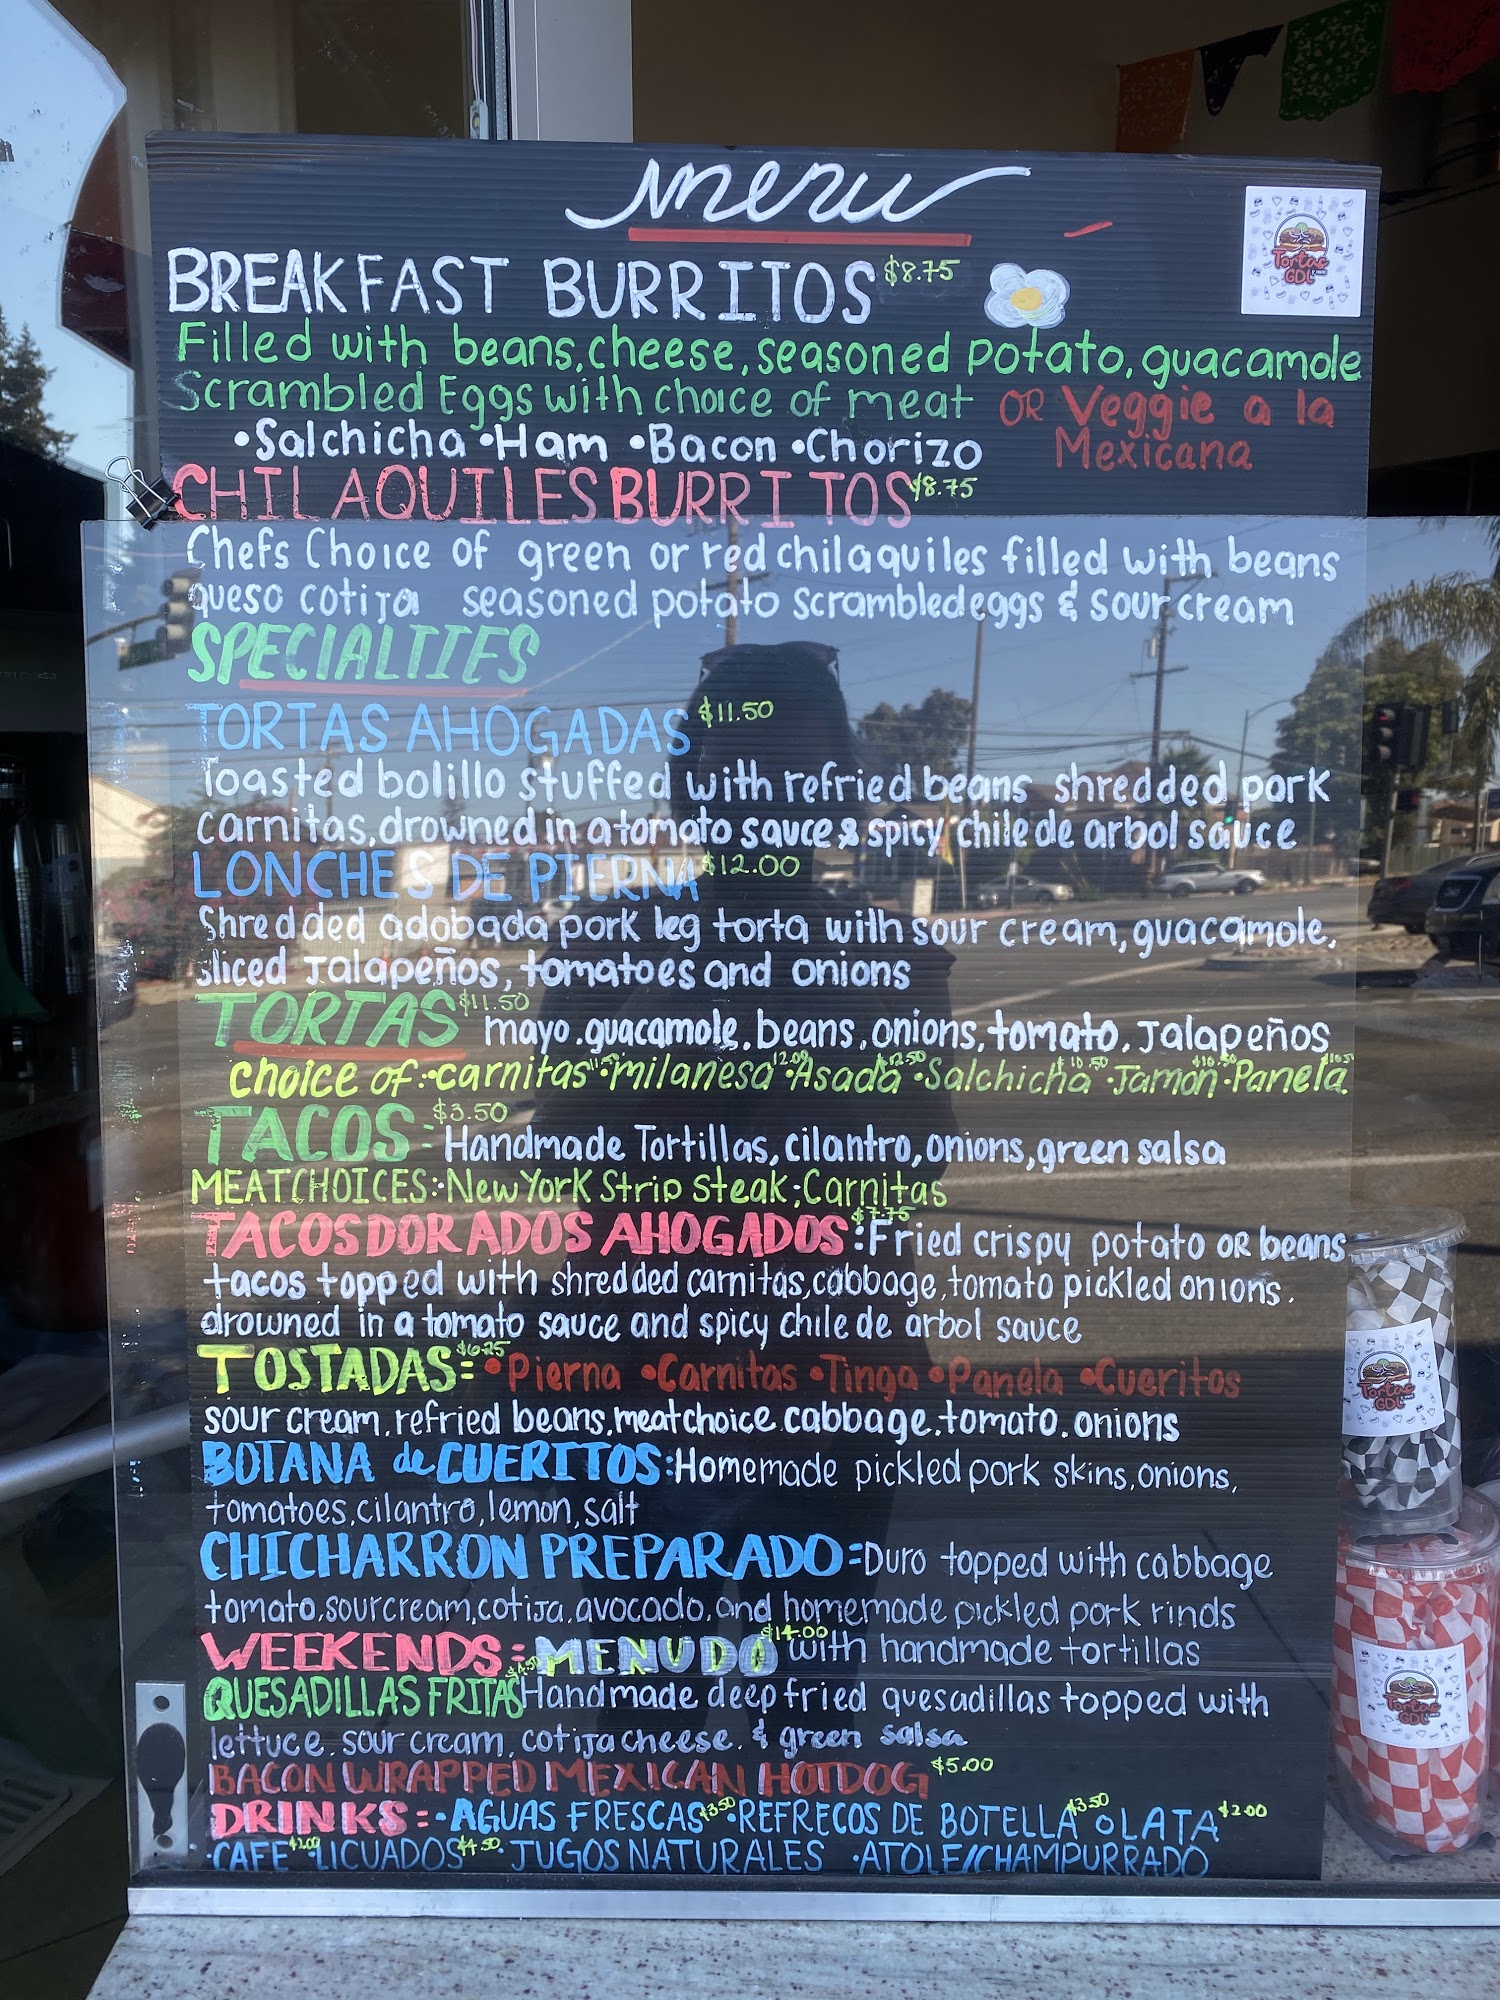 menu
Tortas
GDL
BREAKFAST BURRITOS $8.75
Filled with beans, cheese, seasoned potato, guacamole
Scrambled Eggs with choice of meat OR Veggie a la
Mexicana
•Salchicha •Ham •Bacon •Chorizo
CHILAQUILES BURRITOS $8.75
Chefs Choice of green or red chilaquiles filled with beans
queso cotija seasoned potato scrambled eggs & sour cream
SPECIALTIES
TORTAS AHOGADAS $11.50
Toasted bolillo stuffed with refried beans shredded pork
carnitas, drowned in a tomato sauce & spicy chile de arbol sauce
LONCHES DE PIERNA $12.00
Shredded adobada pork leg torta with sour cream, guacamole,
sliced Jalapeños, tomatoes and onions
TORTAS $11.50 mayo. guacamole, beans, onions, tomato, Jalapeños
choice of: •carnitas •milanesa 12.00 •Asada $12.50 •Salchicha $10.50 •Jamon $10.50 •Panela
TACOS $3.50 = Handmade Tortillas, cilantro, onions, green salsa
MEAT CHOICES: New York Strip Steak; Carnitas
TACOS DORADOS AHOGADOS $7.75 : Fried crispy potato OR beans
tacos topped with shredded carnitas, cabbage, tomato pickled onions.
drowned in a tomato sauce and spicy chile de arbol sauce
TOSTADAS= $6.25 •Pierna •Carnitas •Tinga •Panela •Cueritos
sour cream, refried beans, meat choice cabbage. tomato. onions
BOTANA de CUERITOS: Homemade pickled pork skins, onions,
tomatoes, cilantro, lemon, salt
CHICHARRON PREPARADO= Duro topped with cabbage
tomato, sour cream, cotija, avocado, and homemade pickled pork rinds
WEEKENDS: MENUDO $14.00 with handmade tortillas
QUESADILLAS FRITAS Handmade deep fried quesadillas topped with
lettuce, sour cream, cotija cheese, & green salsa
BACON WRAPPED MEXICAN HOTDOG $5.00
DRINKS: •AGUAS FRESCAS $3.50 •REFRECOS DE BOTELLA $3.50 O LATA $2.00
•CAFE $2.00 •LICUADOS $4.50 • JUGOS NATURALES •ATOLE/CHAMPURRADO
Tortas
GDL
Tortas
GDL